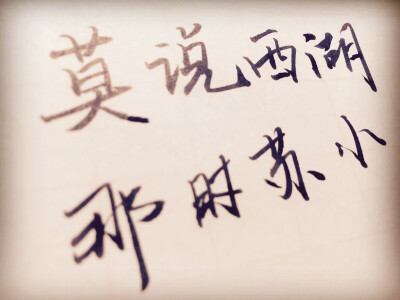 莫说西湖
那时苏小